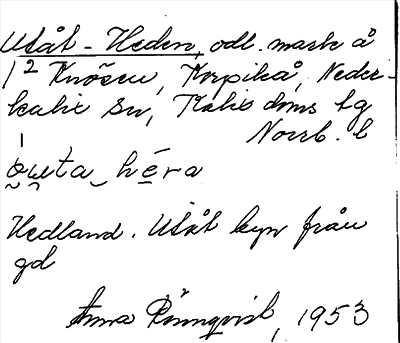 Utåt-Heden, odl. mark å
1² Knösen, Korpikå, Neder-
kalix sn, Kalix doms tg
Norrb. l
outa héra
Hedland. Utåt byn från
gd
Anna Rönnqvist, 1953